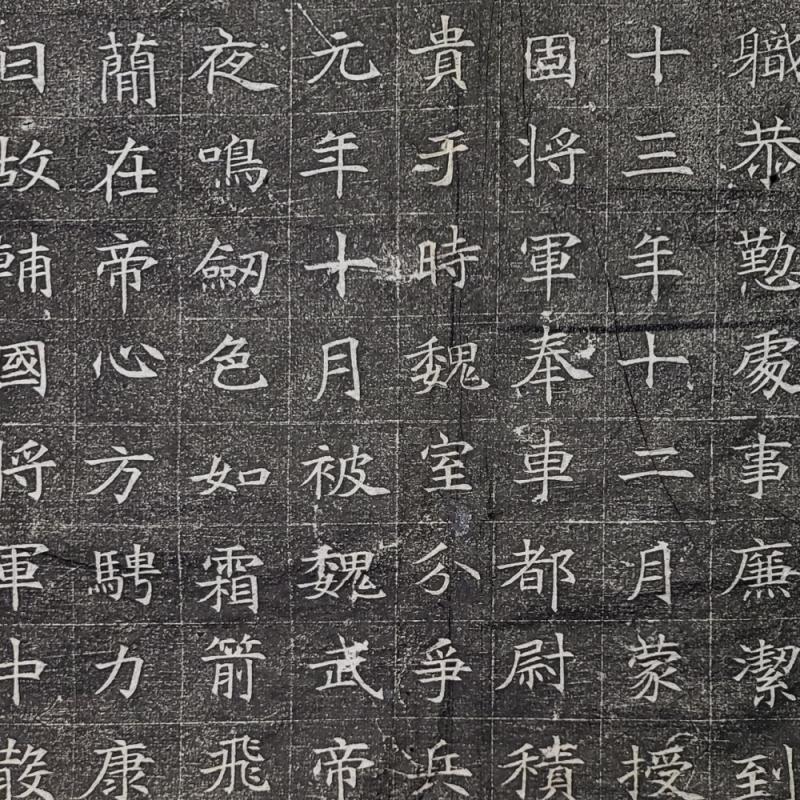 職恭懃處事廉潔到
十三年十二月蒙授
固将軍奉車都尉積
貴于時魏室分爭兵
元年十月被魏武帝
夜鳴劒色如霜箭飛
蕑在帝心方騁力康
曰故輔國将軍中散